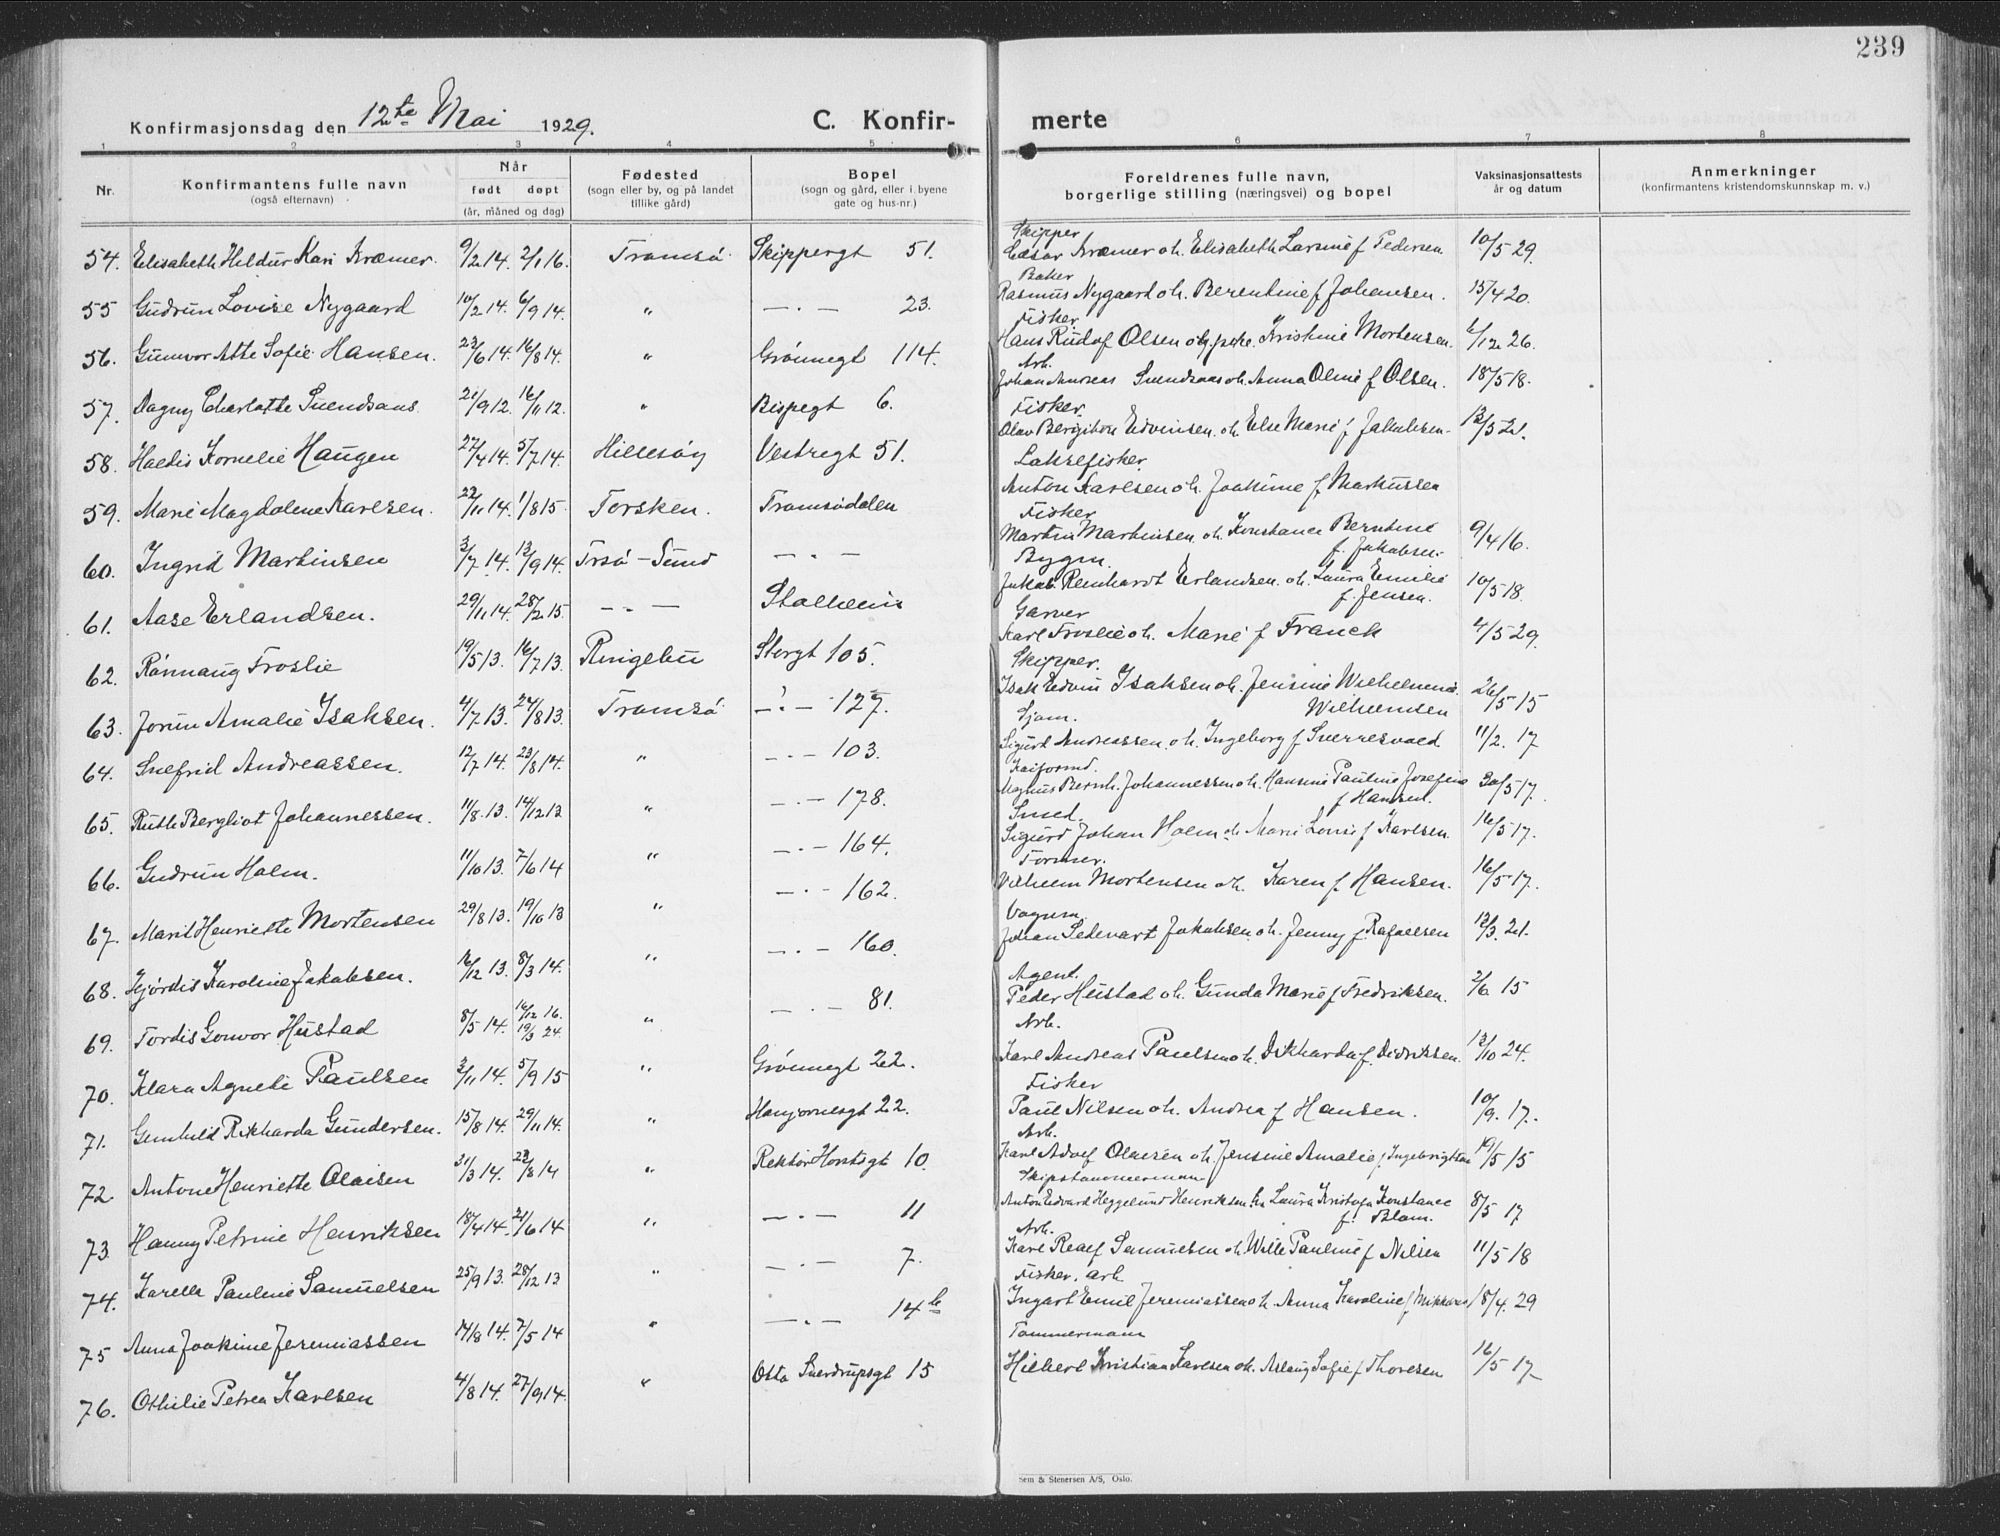 239
Konfirmasjonsdag den 12te Mai 1929.
C. Konfir- merte
1 2 3 4 5 6 7 8
Nr.
Konfirmantens fulle navn
(også efternavn)
Når
født døpt
(år, måned og dag)
Fødested
(sogn eller by, og på landet
tillike gård)
Bopel
(sogn og gård, eller i byene
gate og hus-nr.)
Foreldrenes fulle navn,
borgerlige stilling (næringsvei) og bopel
Vaksinasjonsattests
år og datum
Anmerkninger
(konfirmantens kristendomskunnskap m. v.)
Skipper
54. Elisabeth Hildur Kari Kræmer. 9/2 14. 2/1 16. Tromsø Skippergt 51. Cæsar Kræmer oh. Elisabeth Larsine f Pedersen 10/5 29.
Baker
55 Gudrun Lovise Nygaard 10/2 14. 6/9 14. " — . — 23. Rasmus Nygaard oh. Berentine f Johansen. 15/4 20.
Fisker
56. Gunvor Atte Sofie Hansen. 23/6 14. 16/8 14. " Grønnegt 114. Hans Rudolf Olsen og Kristine Mortensen. 6/12 26.
Arb.
57. Dagny Charlotte Svendsaas. 21/9 12. 16/11 12. " Bispegt 6. Johan Andreas Svendsaas oh. Anna Oline f Olsen. 18/5 18.
Fisker.
58. Haldis Kornelie Haugen 27/4 14. 5/7 14. Hillesøy Vestregt 51. Olav Bergiton Edvinsen oh. Else Marie f Jakobsen. 13/5 21.
Laksefisker.
59. Marie Magdalene Karlsen. 22/11 14. 1/8 15. Torsken. Tromsødalen Anton Karlsen oh. Joakime f Markussen
Fisker
60. Ingrid Martinsen 3/7 14. 13/9 14. Trsø-Sund — . — Martin Martinsen oh. Konstance Berntine f. Jakobsen. 9/4 16.
Bygm.
61. Aase Erlandsen. 29/11 14. 28/2 15. — . — Stalheim Jakob Reinhardt Erlandsen oh. Laura Emilie f. Jensen. 10/5 18.
Garver
62. Rønnaug Froslie 19/5 13. 16/7 13. Ringebu Storgt 105. Karl Froslie oh. Marie f Franck 4/5 29.
Skipper.
63. Jorun Amalie Isaksen. 4/7 13. 24/8 13. Tromsø — . — 127. Isak Edvin Isaksen oh. Jensine Wilhelmine Wilhelmsen 26/5 15
Sjøm.
64. Snefrid Andreassen. 12/7 14. 23/8 14. " — . — 103. Sigurd Andreassen oh. Ingeborg f Sverresvold 11/2. 17
Kaiformd.
65. Ruth Bergliot Johannessen. 11/8 13. 14/12 13 " — . — 178. Magnus Bernh. Johannessen oh. Hansine Pauline Josefine f Hansen. 30/5 17.
Smed.
66. Gudrun Holm. 11/10 13. 7/6 14 " — . — 164. Sigurd Johan Holm oh. Marie Lovise f Karlsen. 16/5 17.
Former.
67. Marit Henriette Mortensen 29/8 13. 19/10 13 " — . — 162. Vilhelm Mortensen oh. Karen f Hansen. 16/5 17.
Vognm.
68. Hjørdis Karoline Jakobsen. 16/12 13. 8/3 14. " — . — 160. Johan Sedevart Jakobsen oh. Jenny f. Rafaelsen 12/3. 21.
Agent.
69. Tordis Gonvor Hustad 8/5 14. 16/12 16. 19/3 24. " — . — 81. Peder Hustad oh. Gunda Marie f Fredriksen. 2/6 15
Arb.
70. Klara Agnete Paulsen 3/11 14. 5/9 15 " Grønnegt 22. Karl Andreas Paulsen oh. Dikharda f. Didriksen. 13/10 24.
Fisker
71. Gunhild Rikharda Gundersen. 15/8 14. 29/11 14. " 22. Paul Nilsen oh. Andrea f Hansen. 10/9. 17.
Arb.
72. Antone Henriette Olaisen 31/3 14. 23/8 14 " Rektor Horstsgt 10. Karl Adolf Olaisen oh. Jensine Amalie f Ingebrigtsen 19/5 15
Skipstømmermann
73. Hanny Petrine Henriksen 18/4 14. 21/6 14 " — . — 11 Anton Edvard Heggelund Henriksen oh Laura Kristofa Konstance f. Blom. 8/5 17
Arb.
74. Karella Pauline Samuelsen 25/9 13. 28/12 13 " — . — 7. Karl Roalf Samuelsen oh. Wille Pauline f Nilsen 11/5 18
Fisker. arb
75 Anna Joakime Jeremiassen 14/8 14. 7/5 14 " — . — 14b Ingart Emil Jeremiassen oh. Anna Karoline f Mikkelsen 18/4. 29
Tømmermann
76. Othilie Petrea Karlsen 4/8 14. 27/9 14. " Otto Sverdrupsgt 15 Hilberd Kristian Karlsen oh. Aslaug Sofie f Thoresen 16/5 17
Sem & Stenersen A/S, Oslo.